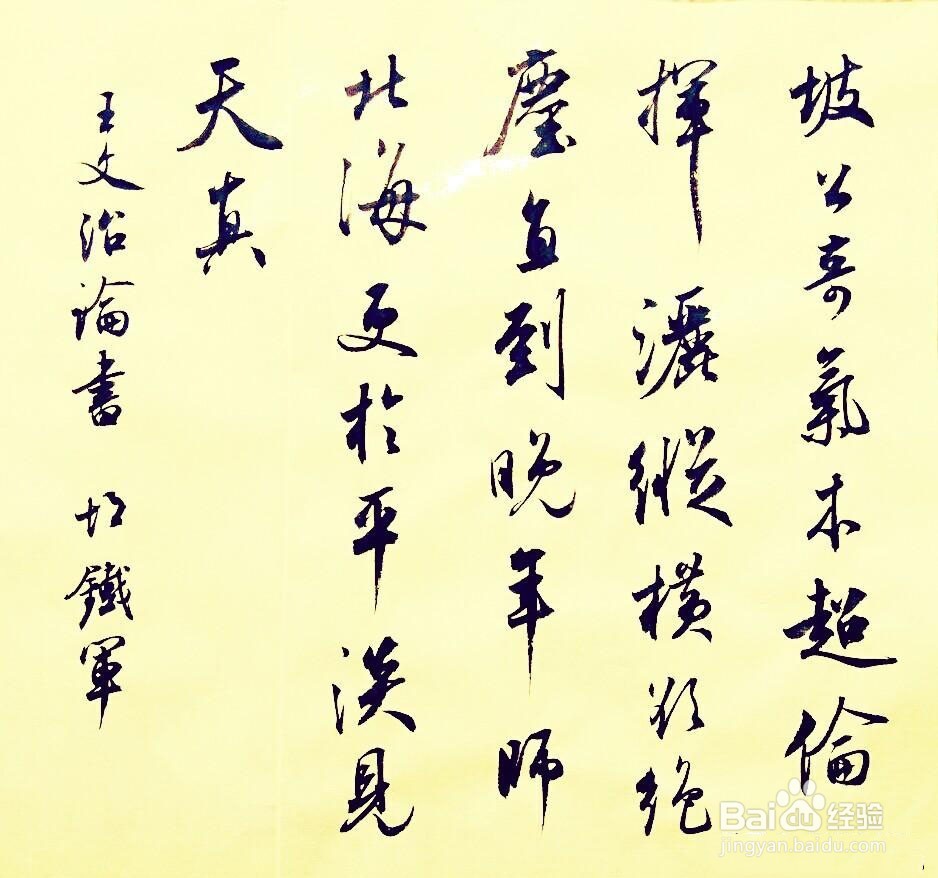 坡公奇氣本超倫
揮灑縱橫欲絶
塵直到晚年師
北海更於平淡見
天真
王文治論書 胡鐵軍
Baidu经验
jingyan.baidu.com